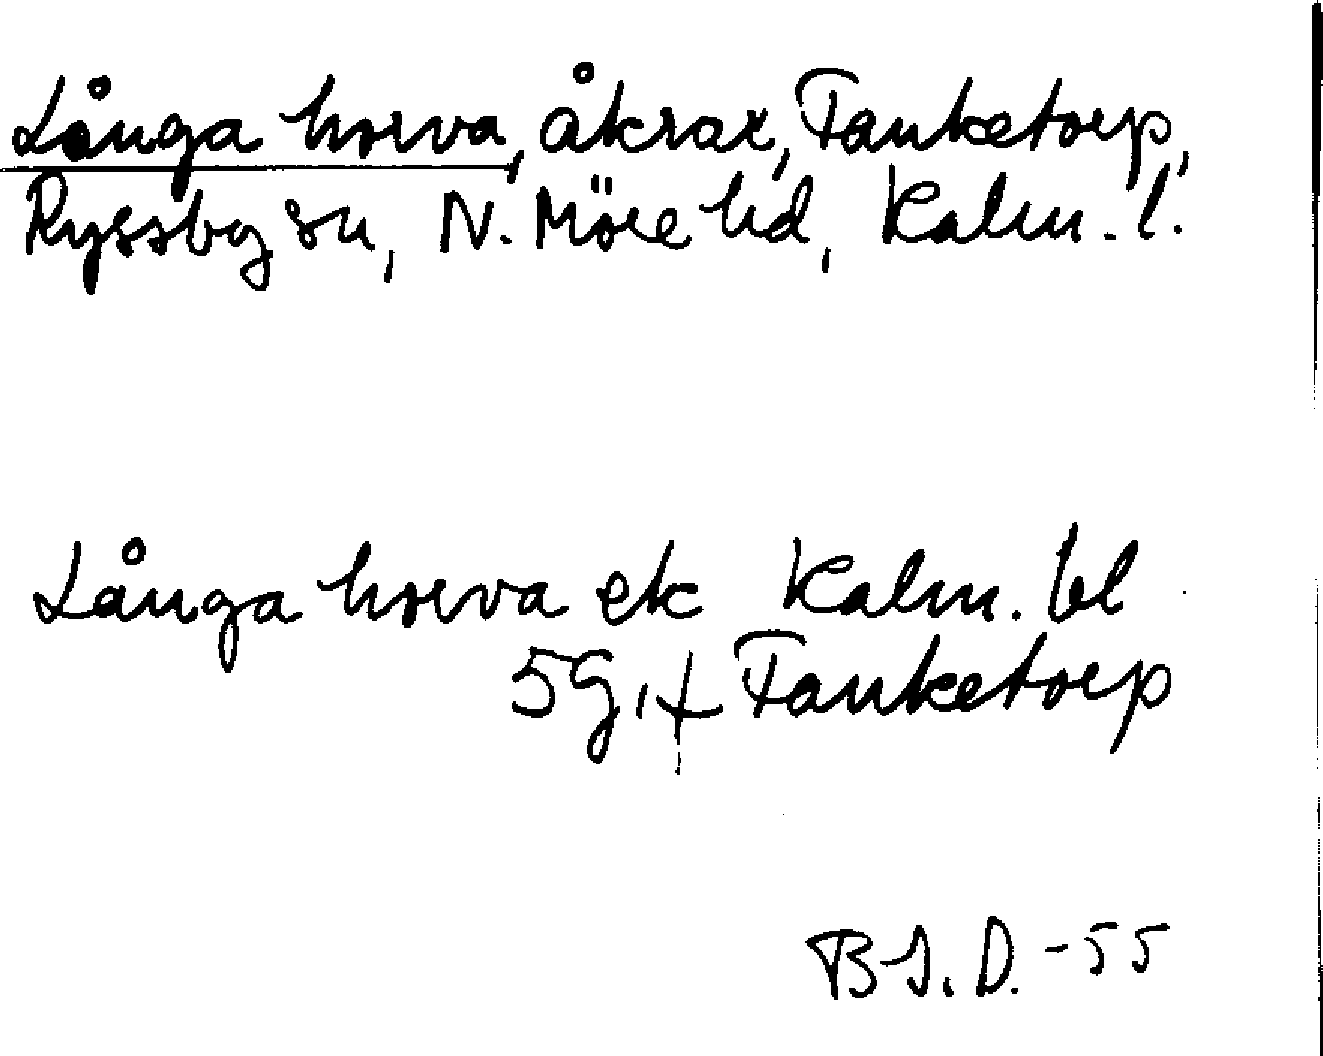 Långa horva, åkrar, Tanketorp,
Ryssby sn, N. Möre hd, Kalm. l.
Långa horva ek Kalm. bl
5g, Tanketorp
B-J. D. -55